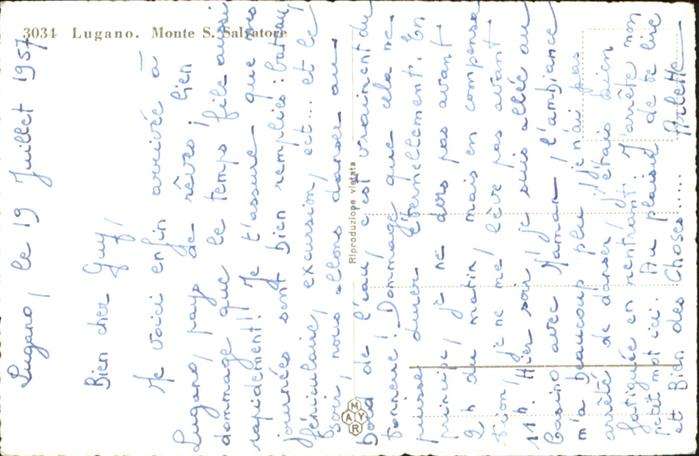 3034 Lugano. Monte S. Salvatore
Riproduzione vietata
MAYR
Lugano, le 19 Juillet 1957
Bien cher Guy,
Me voici enfin arrivée à
Lugano, pays de rêves! Bien
dommage que le temps file aussi
rapidement! Je t'assure que nos
journées sont bien remplies: bateau,
féniculaire, excursion, ect... et le
soir, nous allons danser au
bord de l'eau, c'est vraiment du
tonnerre! Dommage que cela ne
puisse durer Éternellement. En
principe, je ne dors pas avant
2 h du matin, mais en compensa
tion, je ne me lève pas avant
11 h. Hier soir, je suis allée au
Casino avec Maman, l'ambiance
m'a beaucoup plu, je n'ai pas
arrêté de danser, j'étais bien
fatiguée en rentrant. J'arrête mon
petit mot ici. Au plaisir de te lire
et Bien des Choses.....
Arlette